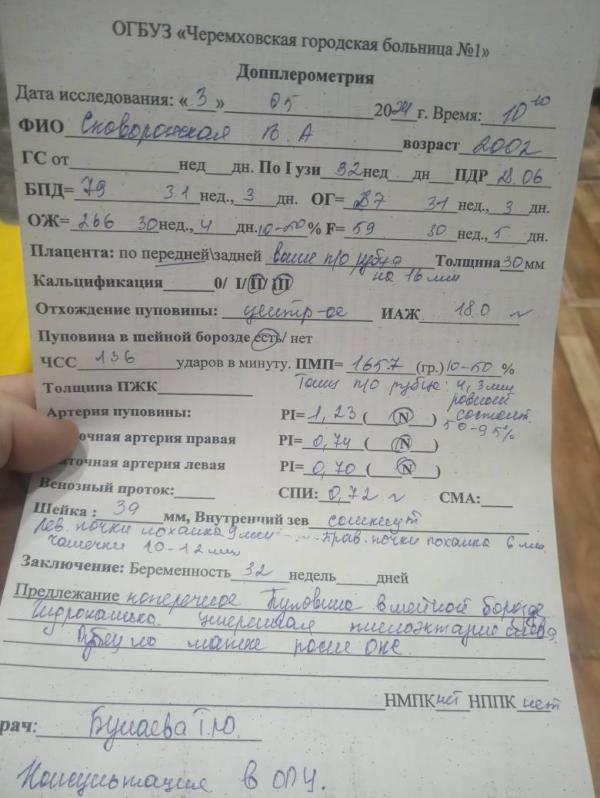 ОГБУЗ «Черемховская городская больница №1»
Допплерометрия
Дата исследования: « 3 » 05 2024 г. Время: 10 10
ФИО В. А возраст 2002
ГС от нед дн. По I узи 32 нед дн ПДР 28.06
БПД= 79 31 нед., 3 дн. ОГ= 287 31 нед., 3 дн.
ОЖ= 266 30 нед., 4 дн. 10-50 % F= 59 30 нед., 5 дн.
Плацента: по передней\задней выше п/о рубца Толщина 30 мм
на 16 мм
Кальцификация 0/ I/ II/ III
Отхождение пуповины: центр-ое ИАЖ 180 N
Пуповина в шейной борозде есть/ нет
ЧСС 136 ударов в минуту. ПМП= 1657 (гр.) 10-50 %
Толщина ПЖК Толщ п/о рубца: 4,3 мм
ровный
Артерия пуповины: PI= 1,23 ( N ) состоят.
50-95%
точная артерия правая PI= 0,74 ( N )
точная артерия левая PI= 0,70 ( N )
Венозный проток: СПИ: 0,72 N СМА:
Шейка : 39 мм, Внутренний зев сомкнут
Лев. почки лоханка 9 мм прав. почки лоханка 6 мм
чашечки 10-12 мм
Заключение: Беременность 32 недель дней
Предлежание поперечное Пуповина в шейной борозде
умеренная пиелоэктазия слева
Рубец на матке после ОКС.
НМПК нет НППК нет
рач: Булаева Т.Ю.
Консультация в ОПЦ.